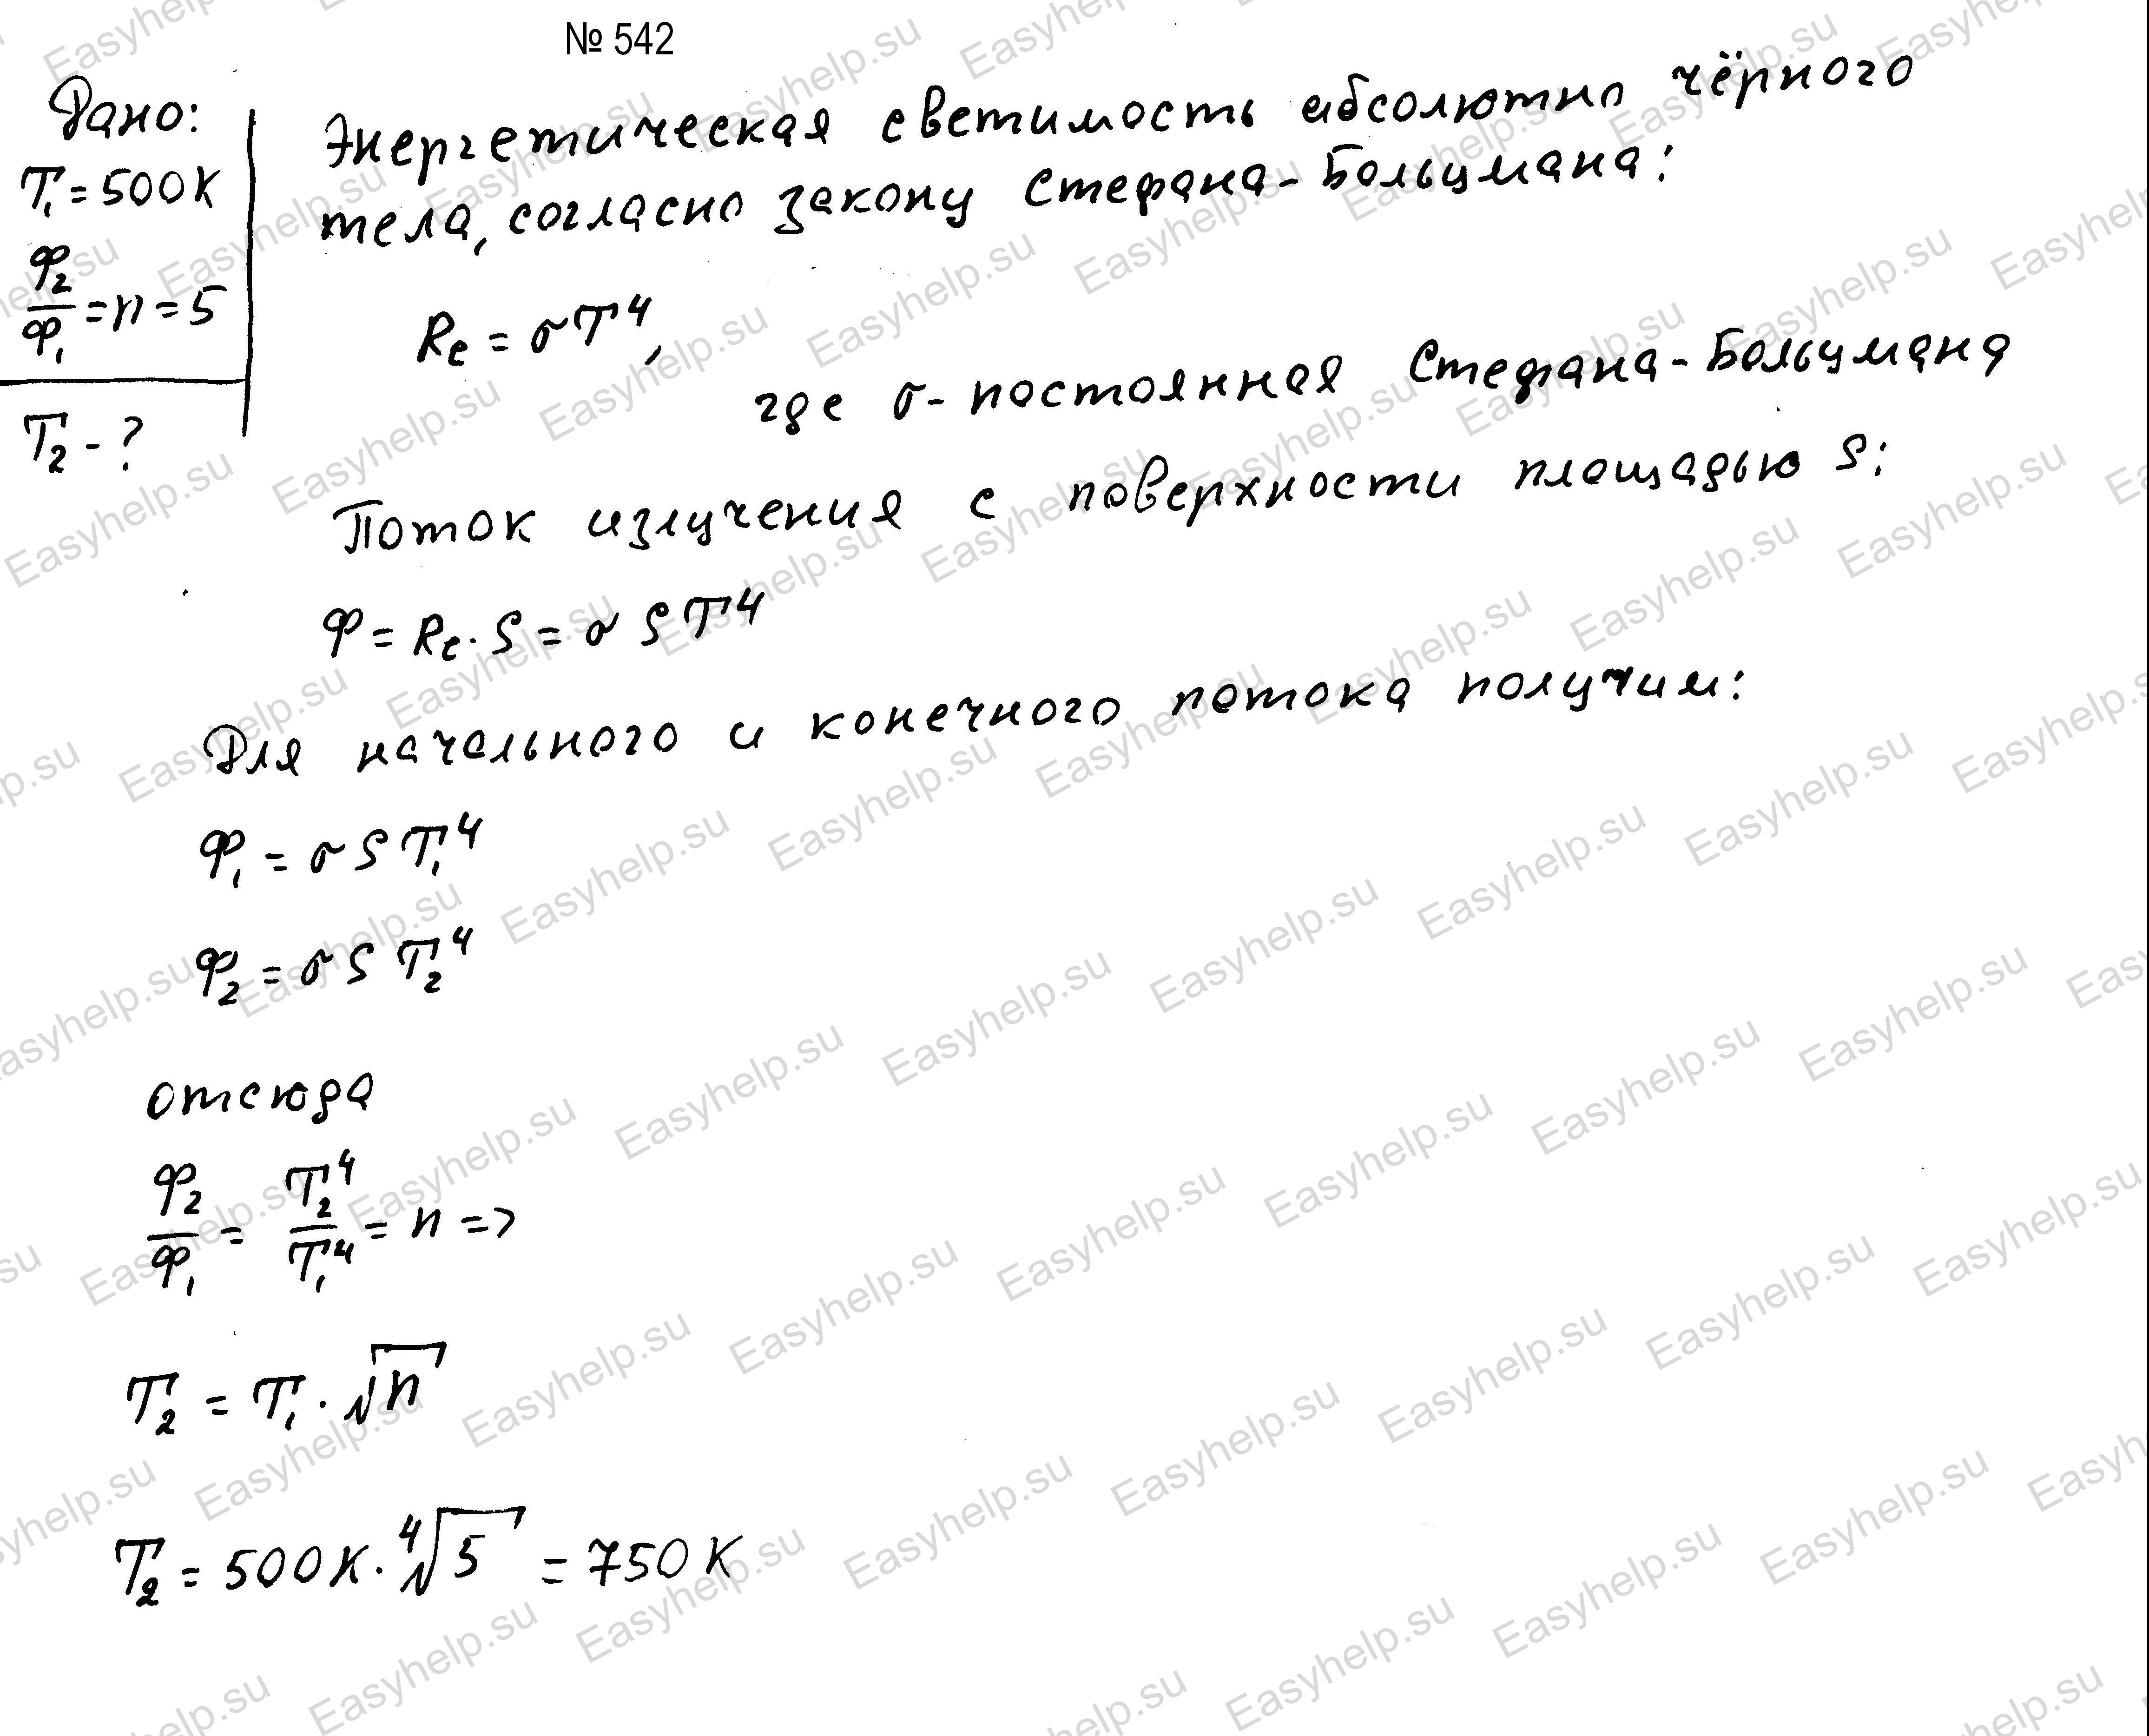 № 542
Дано:
T₁ = 500 К
Ф₂/Ф₁ = n = 5
T₂ - ?
Энергетическая светимость абсолютно чёрного
тела, согласно закону Стефана-Больцмана:
Rₑ = σT⁴,
где σ - постоянная Стефана-Больцмана
Поток излучения с поверхности площадью S:
Ф = Rₑ · S = σ S T⁴
Для начального и конечного потока получим:
Ф₁ = σ S T₁⁴
Ф₂ = σ S T₂⁴
отсюда
Ф₂/Ф₁ = T₂⁴/T₁⁴ = n =>
T₂ = T₁ · √n
T₂ = 500 К · ⁴√5 = 750 К
Easyhelp.su